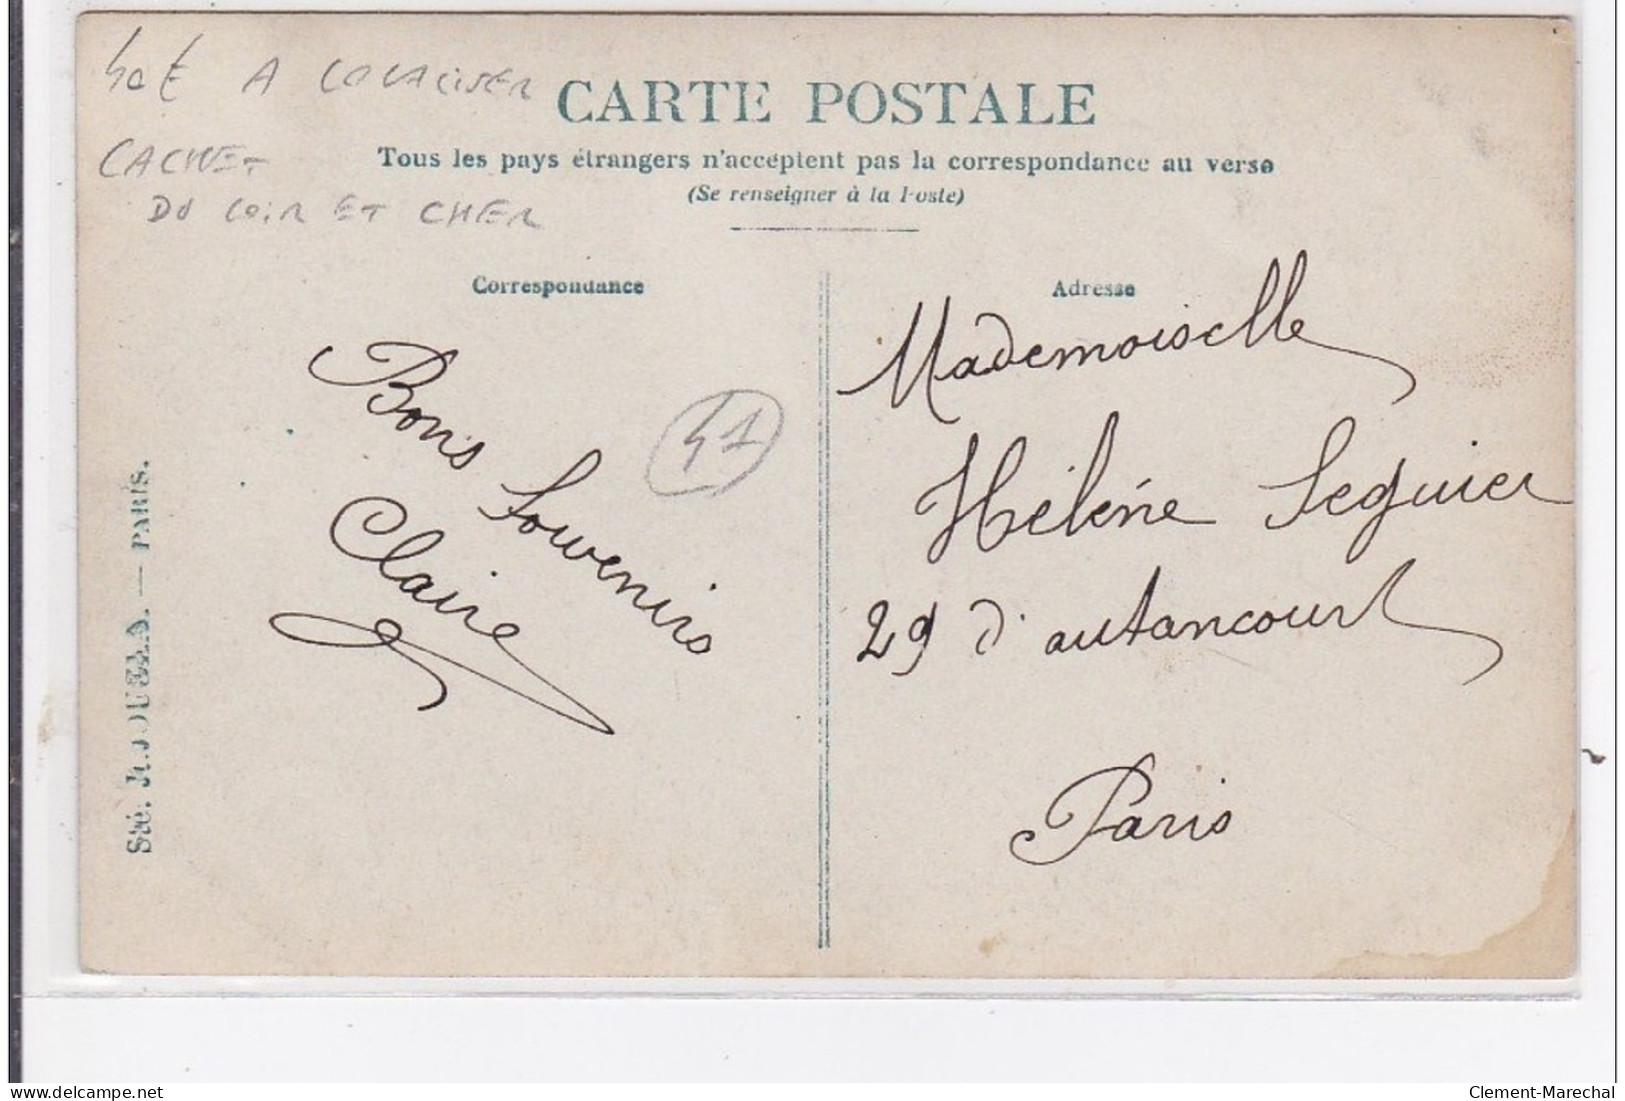 40€ A LOCALISER
CACHET
DU LOIR ET CHER
CARTE POSTALE
Tous les pays étrangers n'acceptent pas la correspondance au verso
(Se renseigner à la Poste)
Correspondance
Bons Souvenirs
Claire
41
Adresse
Mademoiselle
Hélène Seguier
29 d'autancourt
Paris
Sté. — PARIS.
delcampe.net
Clement-Marechal